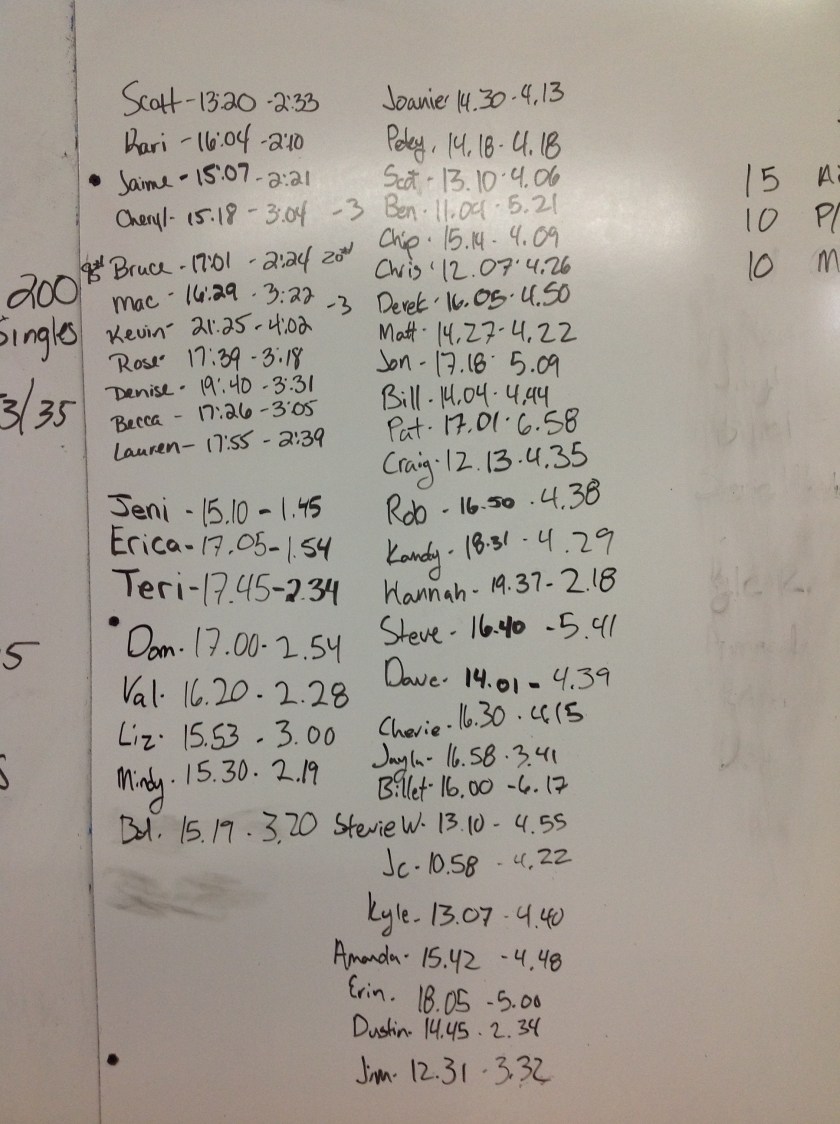 Scott - 13:20 - 2:33
Kari - 16:04 - 2:10
Jaime - 15:07 - 2:21
Cheryl - 15:18 - 3:04 - 3
Bruce - 17:01 - 2:24 20#
Mac - 16:29 - 3:22 - 3
Kevin - 21:25 - 4:02
Rose - 17:39 - 3:18
Denise - 19:40 - 3:31
Becca - 17:26 - 3:05
Lauren - 17:55 - 2:39
Jeni - 15.10 - 1.45
Erica - 17.05 - 1.54
Teri - 17.45 - 2.34
Dom. 17.00 - 2.54
Val. 16.20 - 2.28
Liz. 15.53 - 3.00
Mindy. 15.30. 2.19
15.19. 3.20
Joanie. 14.30 - 4.13
14.18 - 4.18
Scot - 13.10 - 4.06
Ben - 5.21
Chip. 15.14 - 4.09
Chris. 12.07 - 4.26
Derek. 16.05 - 4.50
Matt. 14.27 - 4.22
Jon - 17.18 - 5.09
Bill - 14.04 - 4.44
Pat. 17.01 - 6.58
Craig. 12.13 - 4.35
Rob - 16.50 - 4.38
Kandy - 18.31 - 4.29
Hannah - 19.37 - 2.18
Steve - 16.40 - 5.41
Dave - 14.01 - 4.39
Cherie - 16.30
Jayla - 16.58 - 3.41
Billet - 16.00 - 6.17
Stevie W. 13.10 - 4.55
Jc - 10.58 - 4.22
Kyle - 13.07 - 4.40
Amanda - 15.42 - 4.48
Erin. 18.05 - 5.00
Dustin - 14.45 - 2.34
Jim - 12.31 - 3.32
200
Singles
3/35
5
15
10 P/
10 M